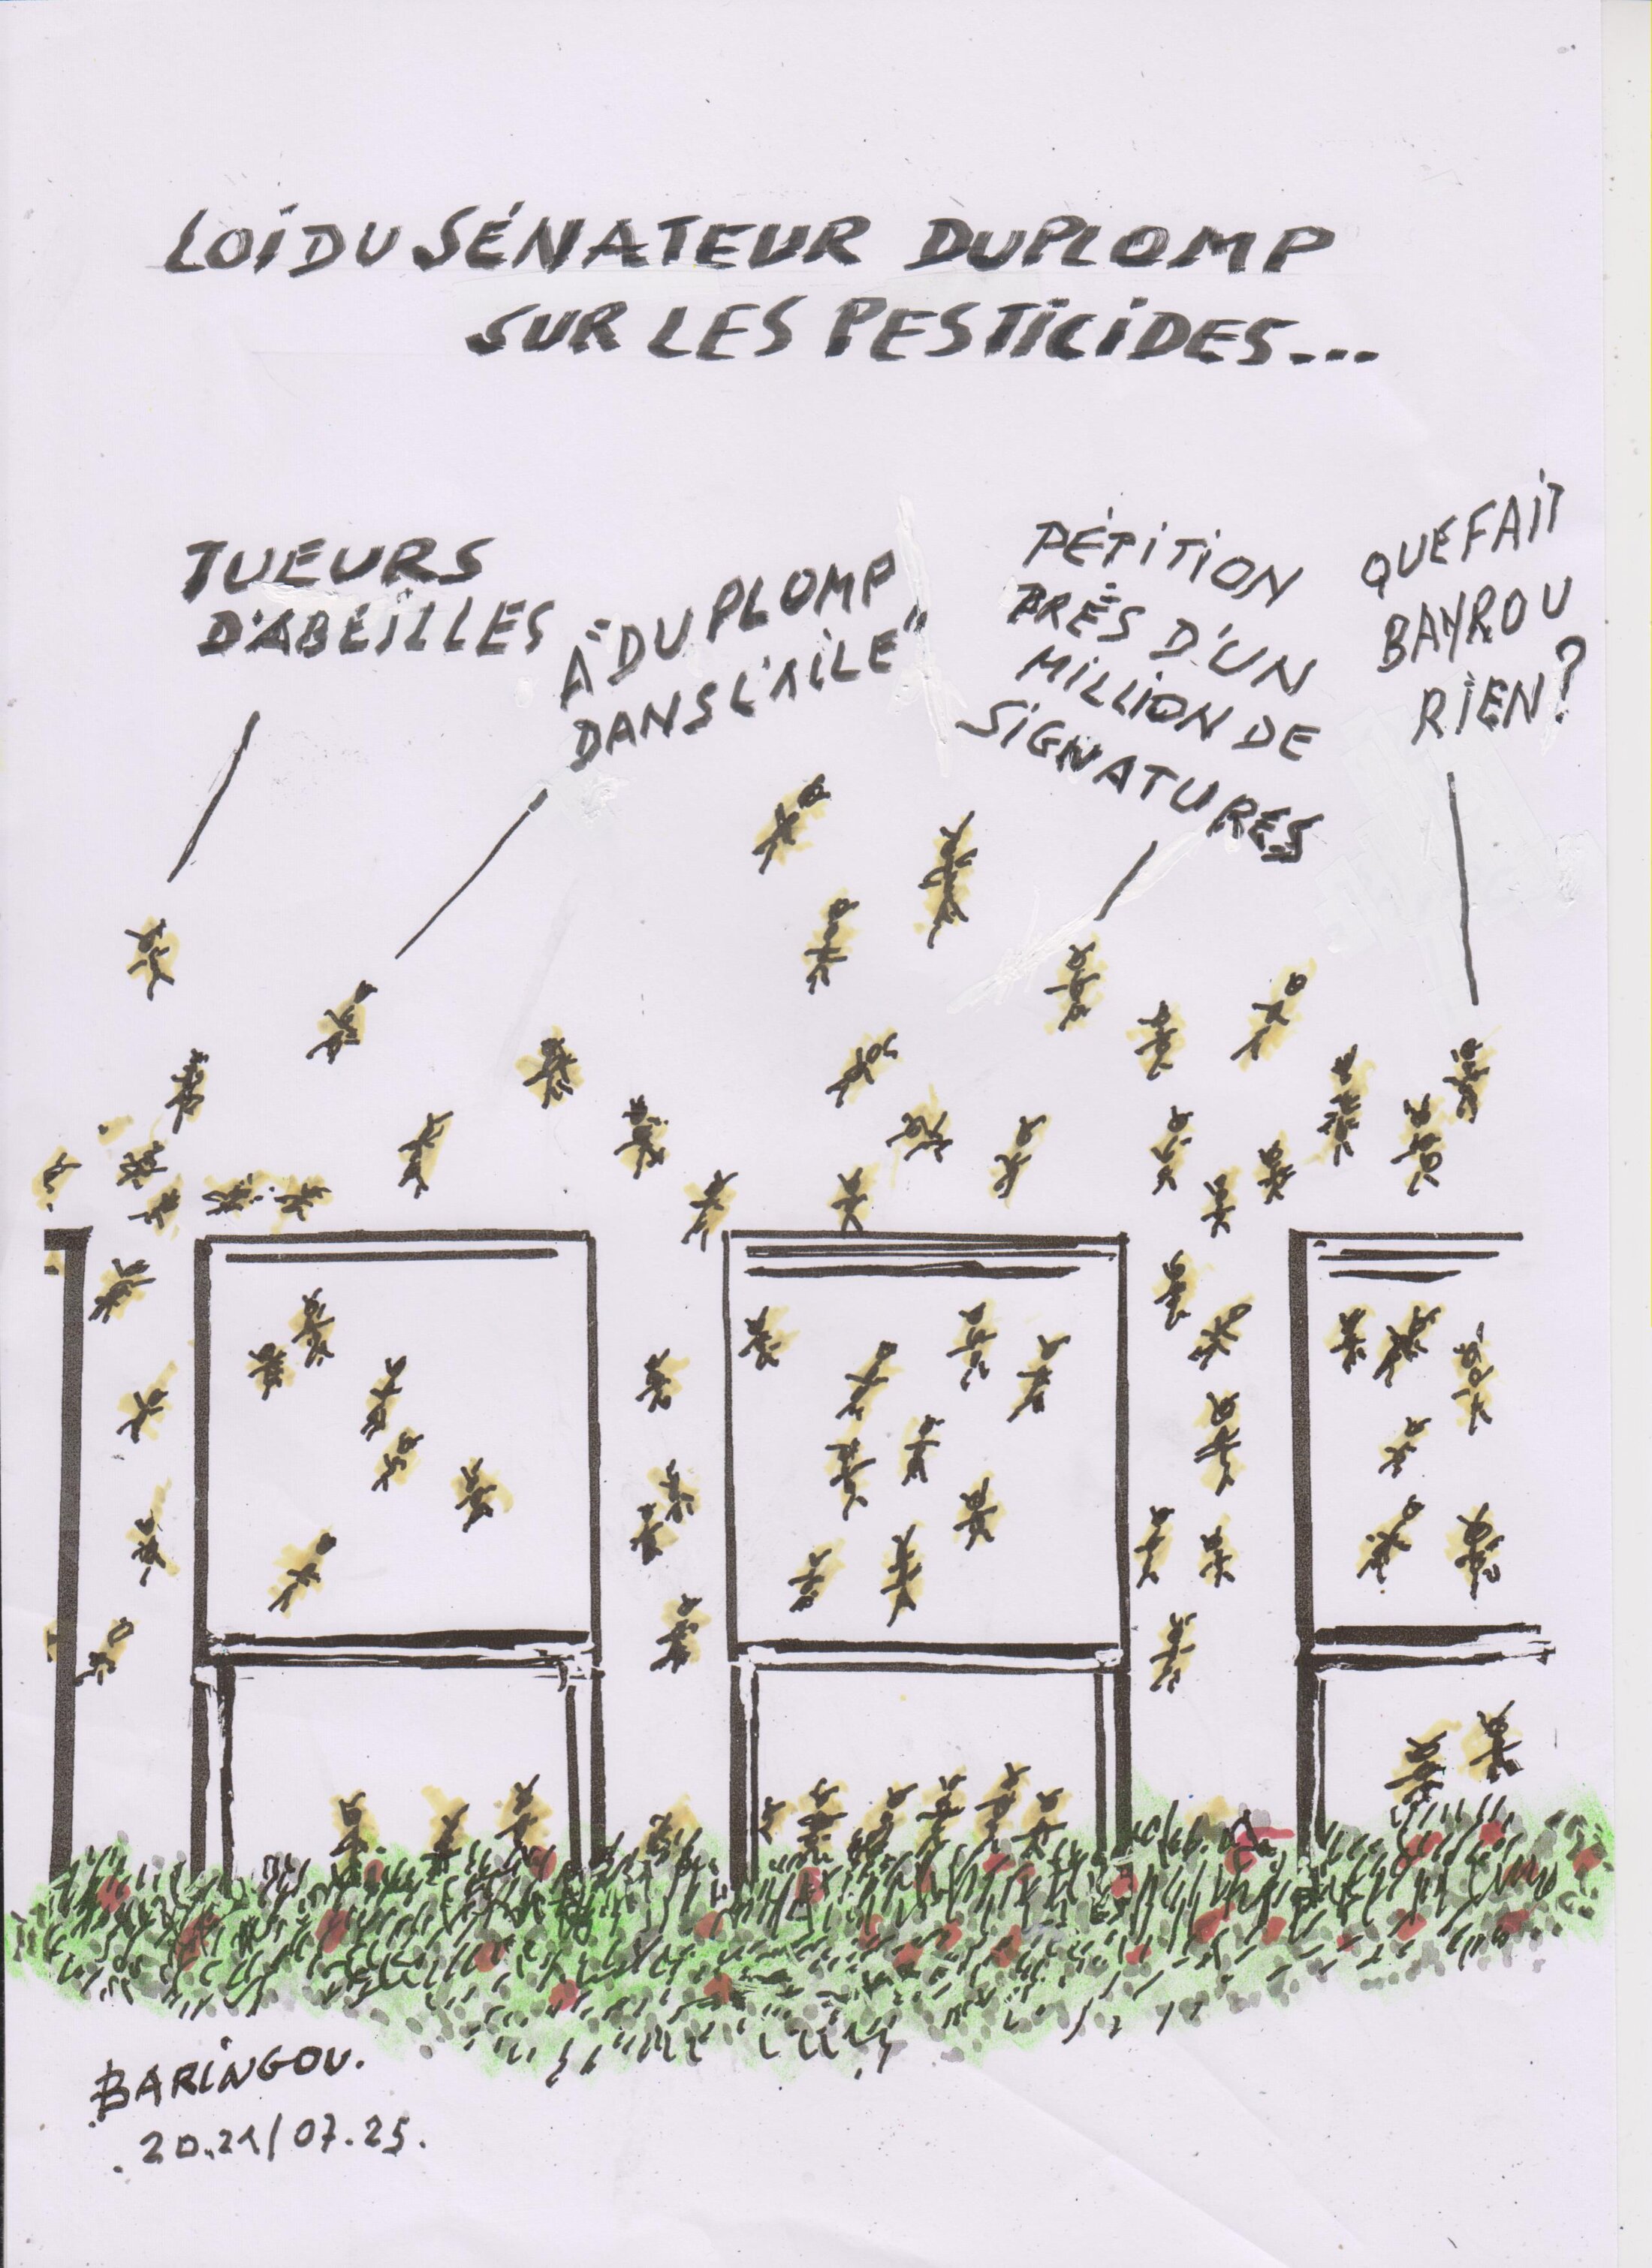 LOI DU SÉNATEUR DUPLOMP
SUR LES PESTICIDES...
TUEURS
D'ABEILLES
A "DU PLOMP
DANS L'AILE"
PÉTITION
PRÈS D'UN
MILLION DE
SIGNATURES
QUE FAIT
BAYROU
RIEN?
BARINGOU.
.20.21/07.25.